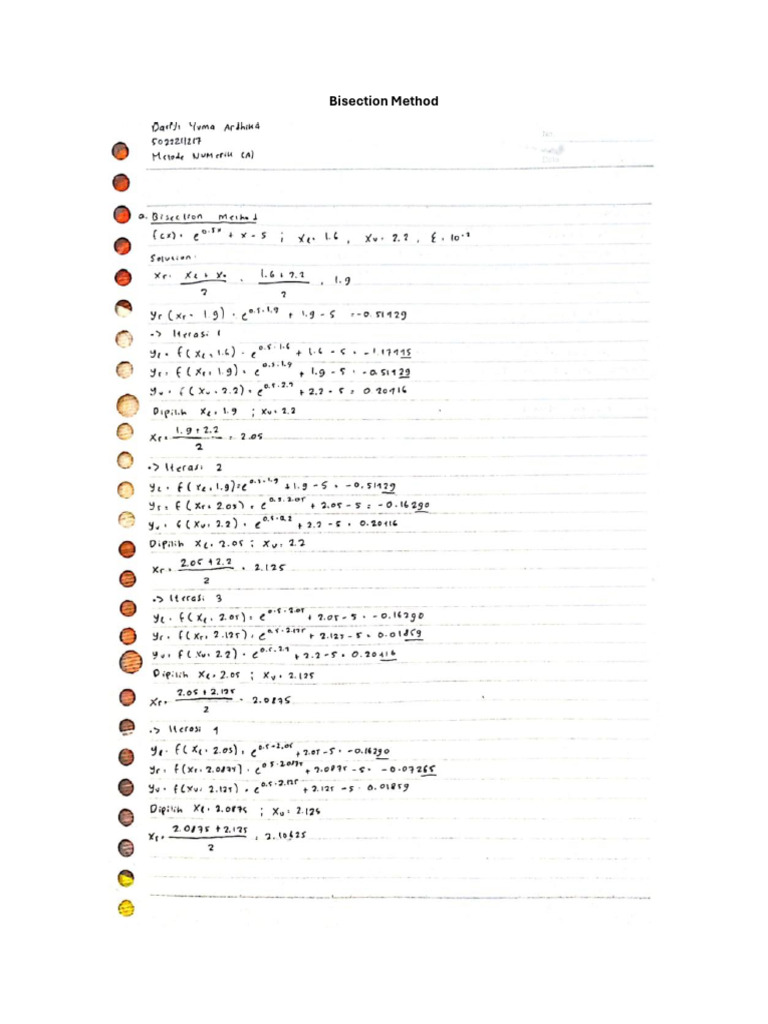 Bisection Method
Yuma Ardhika
Metode Numerik (A)
No.
Date
a. Bisection Method
f(x) = e^0.5x + x - 5 ; xℓ = 1.6 , xu = 2.2 , ε = 10^-2
Solution:
xr = (xℓ + xu)/2 = (1.6 + 2.2)/2 = 1.9
yr (xr = 1.9) = e^0.5·1.9 + 1.9 - 5 = -0.51429
-> Iterasi 1
yℓ = f(xℓ = 1.6) = e^0.5·1.6 + 1.6 - 5 = -1.17445
yr = f(xr = 1.9) = e^0.5·1.9 + 1.9 - 5 = -0.51429
yu = f(xu = 2.2) = e^0.5·2.2 + 2.2 - 5 = 0.20416
Dipilih xℓ = 1.9 ; xu = 2.2
xr = (1.9 + 2.2)/2 = 2.05
-> Iterasi 2
yℓ = f(xℓ = 1.9) = e^0.5·1.9 + 1.9 - 5 = -0.51429
yr = f(xr = 2.05) = e^0.5·2.05 + 2.05 - 5 = -0.16290
yu = f(xu = 2.2) = e^0.5·2.2 + 2.2 - 5 = 0.20416
Dipilih xℓ = 2.05 ; xu = 2.2
xr = (2.05 + 2.2)/2 = 2.125
-> Iterasi 3
yℓ = f(xℓ = 2.05) = e^0.5·2.05 + 2.05 - 5 = -0.16290
yr = f(xr = 2.125) = e^0.5·2.125 + 2.125 - 5 = 0.01859
yu = f(xu = 2.2) = e^0.5·2.2 + 2.2 - 5 = 0.20416
Dipilih xℓ = 2.05 ; xu = 2.125
xr = (2.05 + 2.125)/2 = 2.0875
-> Iterasi 4
yℓ = f(xℓ = 2.05) = e^0.5·2.05 + 2.05 - 5 = -0.16290
yr = f(xr = 2.0875) = e^0.5·2.0875 + 2.0875 - 5 = -0.07265
yu = f(xu = 2.125) = e^0.5·2.125 + 2.125 - 5 = 0.01859
Dipilih xℓ = 2.0875 ; xu = 2.125
xr = (2.0875 + 2.125)/2 = 2.10625